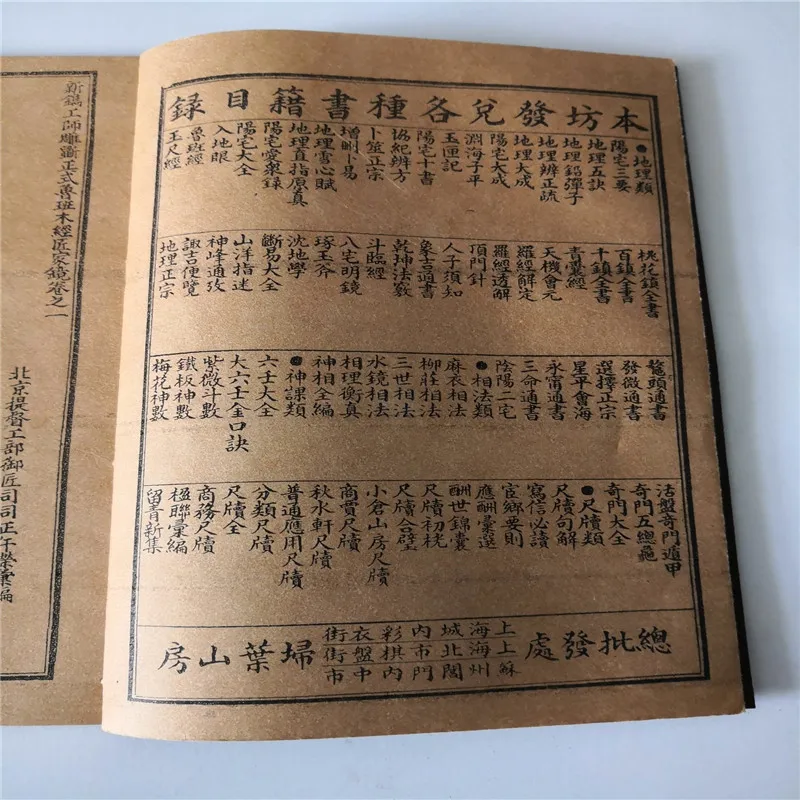 本坊發兌各種書籍目録
●地理類
陽宅三要
地理五訣
地理鉛彈子
地理辨正疏
地理大成
陽宅大成
淵海子平
玉匣記
陽宅十書
協紀辨方
卜筮正宗
增刪卜易
地理雪心賦
地理直指原真
陽宅愛衆録
陽宅大全
入地眼
魯班經
玉尺經
桃花鎮全書
百鎮全書
千鎮全書
青囊經
天機會元
羅經解定
羅經透解
頂門針
人子須知
象吉通書
乾坤法竅
斗臨經
八宅明鏡
琢玉斧
沈地學
斷易大全
山洋指迷
神峰通攷
諏吉便覽
地理正宗
鰲頭通書
發微通書
選擇正宗
星平會海
永甯通書
三命通書
陰陽二宅
●相法類
麻衣相法
柳莊相法
三世相法
水鏡相法
相理衡真
神相全編
●神課類
六壬大全
大六壬金口訣
紫微斗數
鐵板神數
梅花神數
活盤奇門遁甲
奇門五總龜
奇門大全
●尺牘類
尺牘句解
寫信必讀
宦鄉要則
應酬彙選
酬世錦囊
尺牘初桄
尺牘合璧
小倉山房尺牘
商賈尺牘
秋水軒尺牘
普通應用尺牘
分類尺牘
尺牘全
商務尺牘
楹聯彙編
留青新集
總批發處
上海城內彩衣街
上海北市棋盤街
蘇州閶門內中市
掃葉山房
新鐫工師雕斵正式魯班木經匠家鏡卷之一
北京提督工部御匠司司正午榮彙編